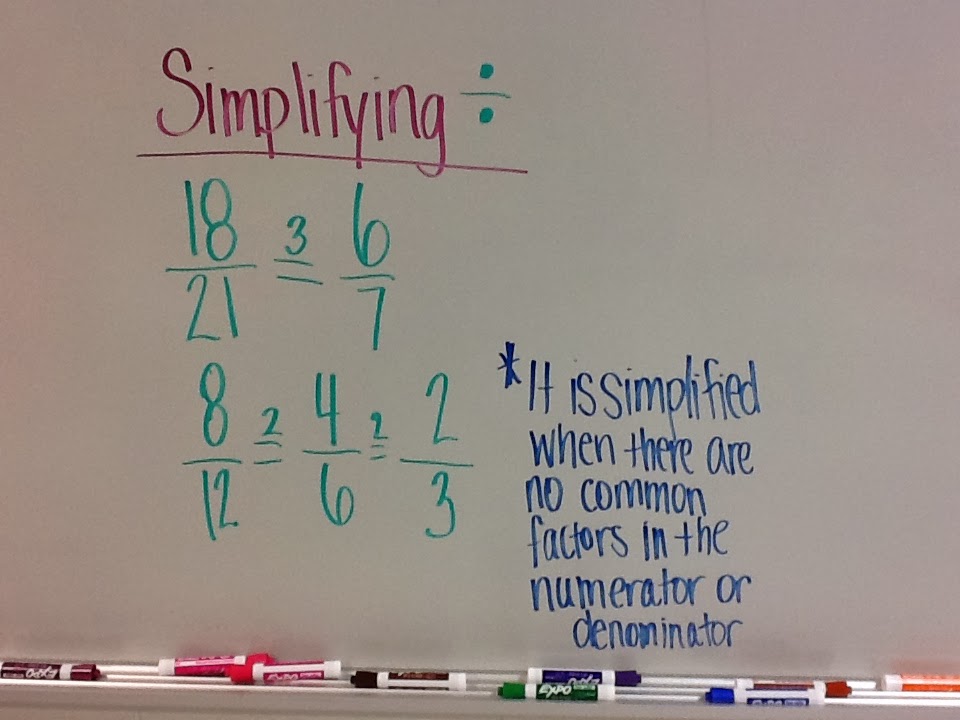 Simplifying ÷
18/21 =3 6/7
8/12 =2 4/6 =2 2/3
*It is simplified
when there are
no common
factors in the
numerator or
denominator
EXPO
EXPO